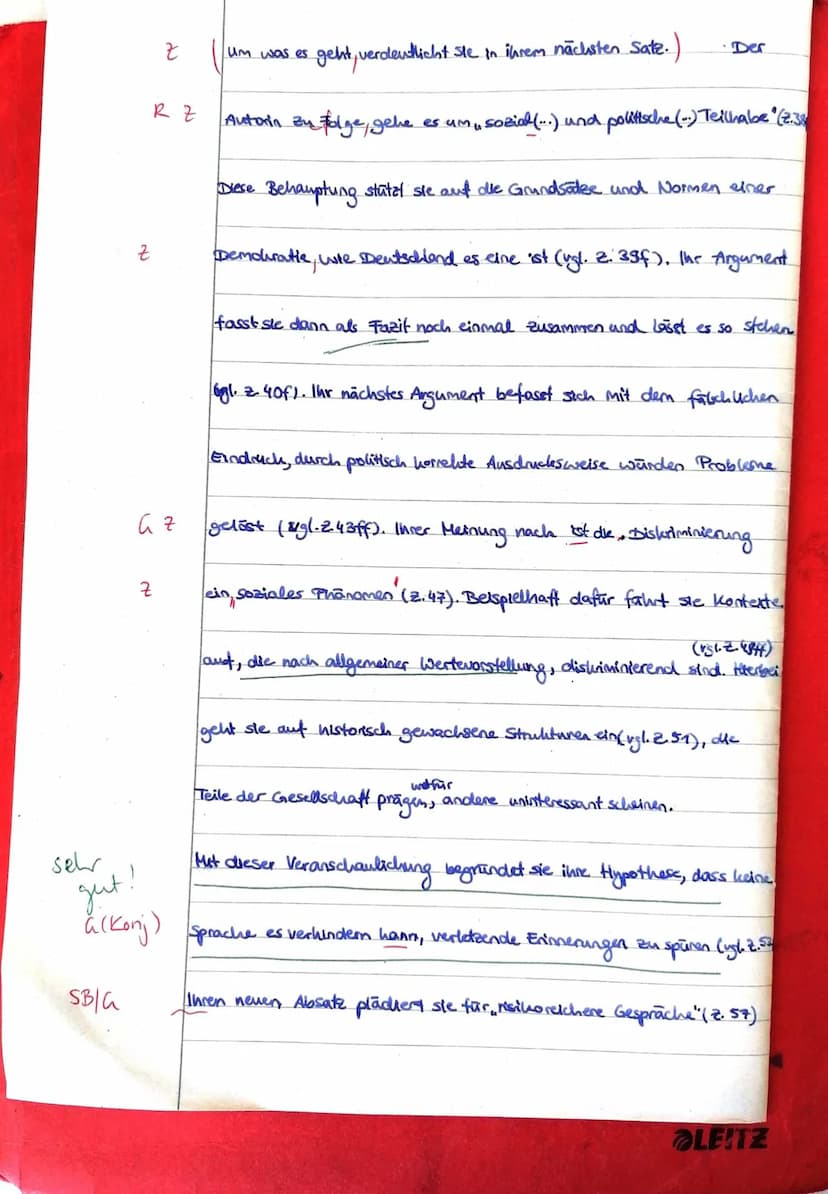 Z (um was es geht, verdeutlicht sie in ihrem nächsten Satz.) Der
R Z Autorin zu Folge, gehe es um „sozial(...) und politische(...) Teilhabe" (Z.39
Diese Behauptung stützt sie auf die Grundsätze und Normen einer
Z Demokratie, wie Deutschland es eine ist (vgl. Z. 39f). Ihr Argument
fasst sie dann als Fazit noch einmal zusammen und lässt es so stehen
(vgl. Z. 40f). Ihr nächstes Argument befasst sich mit dem fälschlichen
Eindruck, durch politisch korrekte Ausdrucksweise würden Probleme
G Z gelöst (vgl. Z. 43ff). Ihrer Meinung nach ist die „Diskriminierung
Z ein „soziales Phänomen" (Z. 47). Beispielhaft dafür führt sie Kontexte
(vgl. Z. 48ff)
auf, die nach allgemeiner Wertevorstellung, diskriminierend sind. Hierbei
geht sie auf historisch gewachsene Strukturen ein (vgl. Z. 51), die
wofür
Teile der Gesellschaft prägen, andere uninteressant scheinen.
sehr gut! Mit dieser Veranschaulichung begründet sie ihre Hypothese, dass keine
G (Konj) Sprache es verhindern kann, verletzende Erinnerungen zu spüren (vgl. Z. 52
SB/G Ihren neuen Absatz plädiert sie für „risikoreichere Gespräche" (Z. 57)
LEITZ